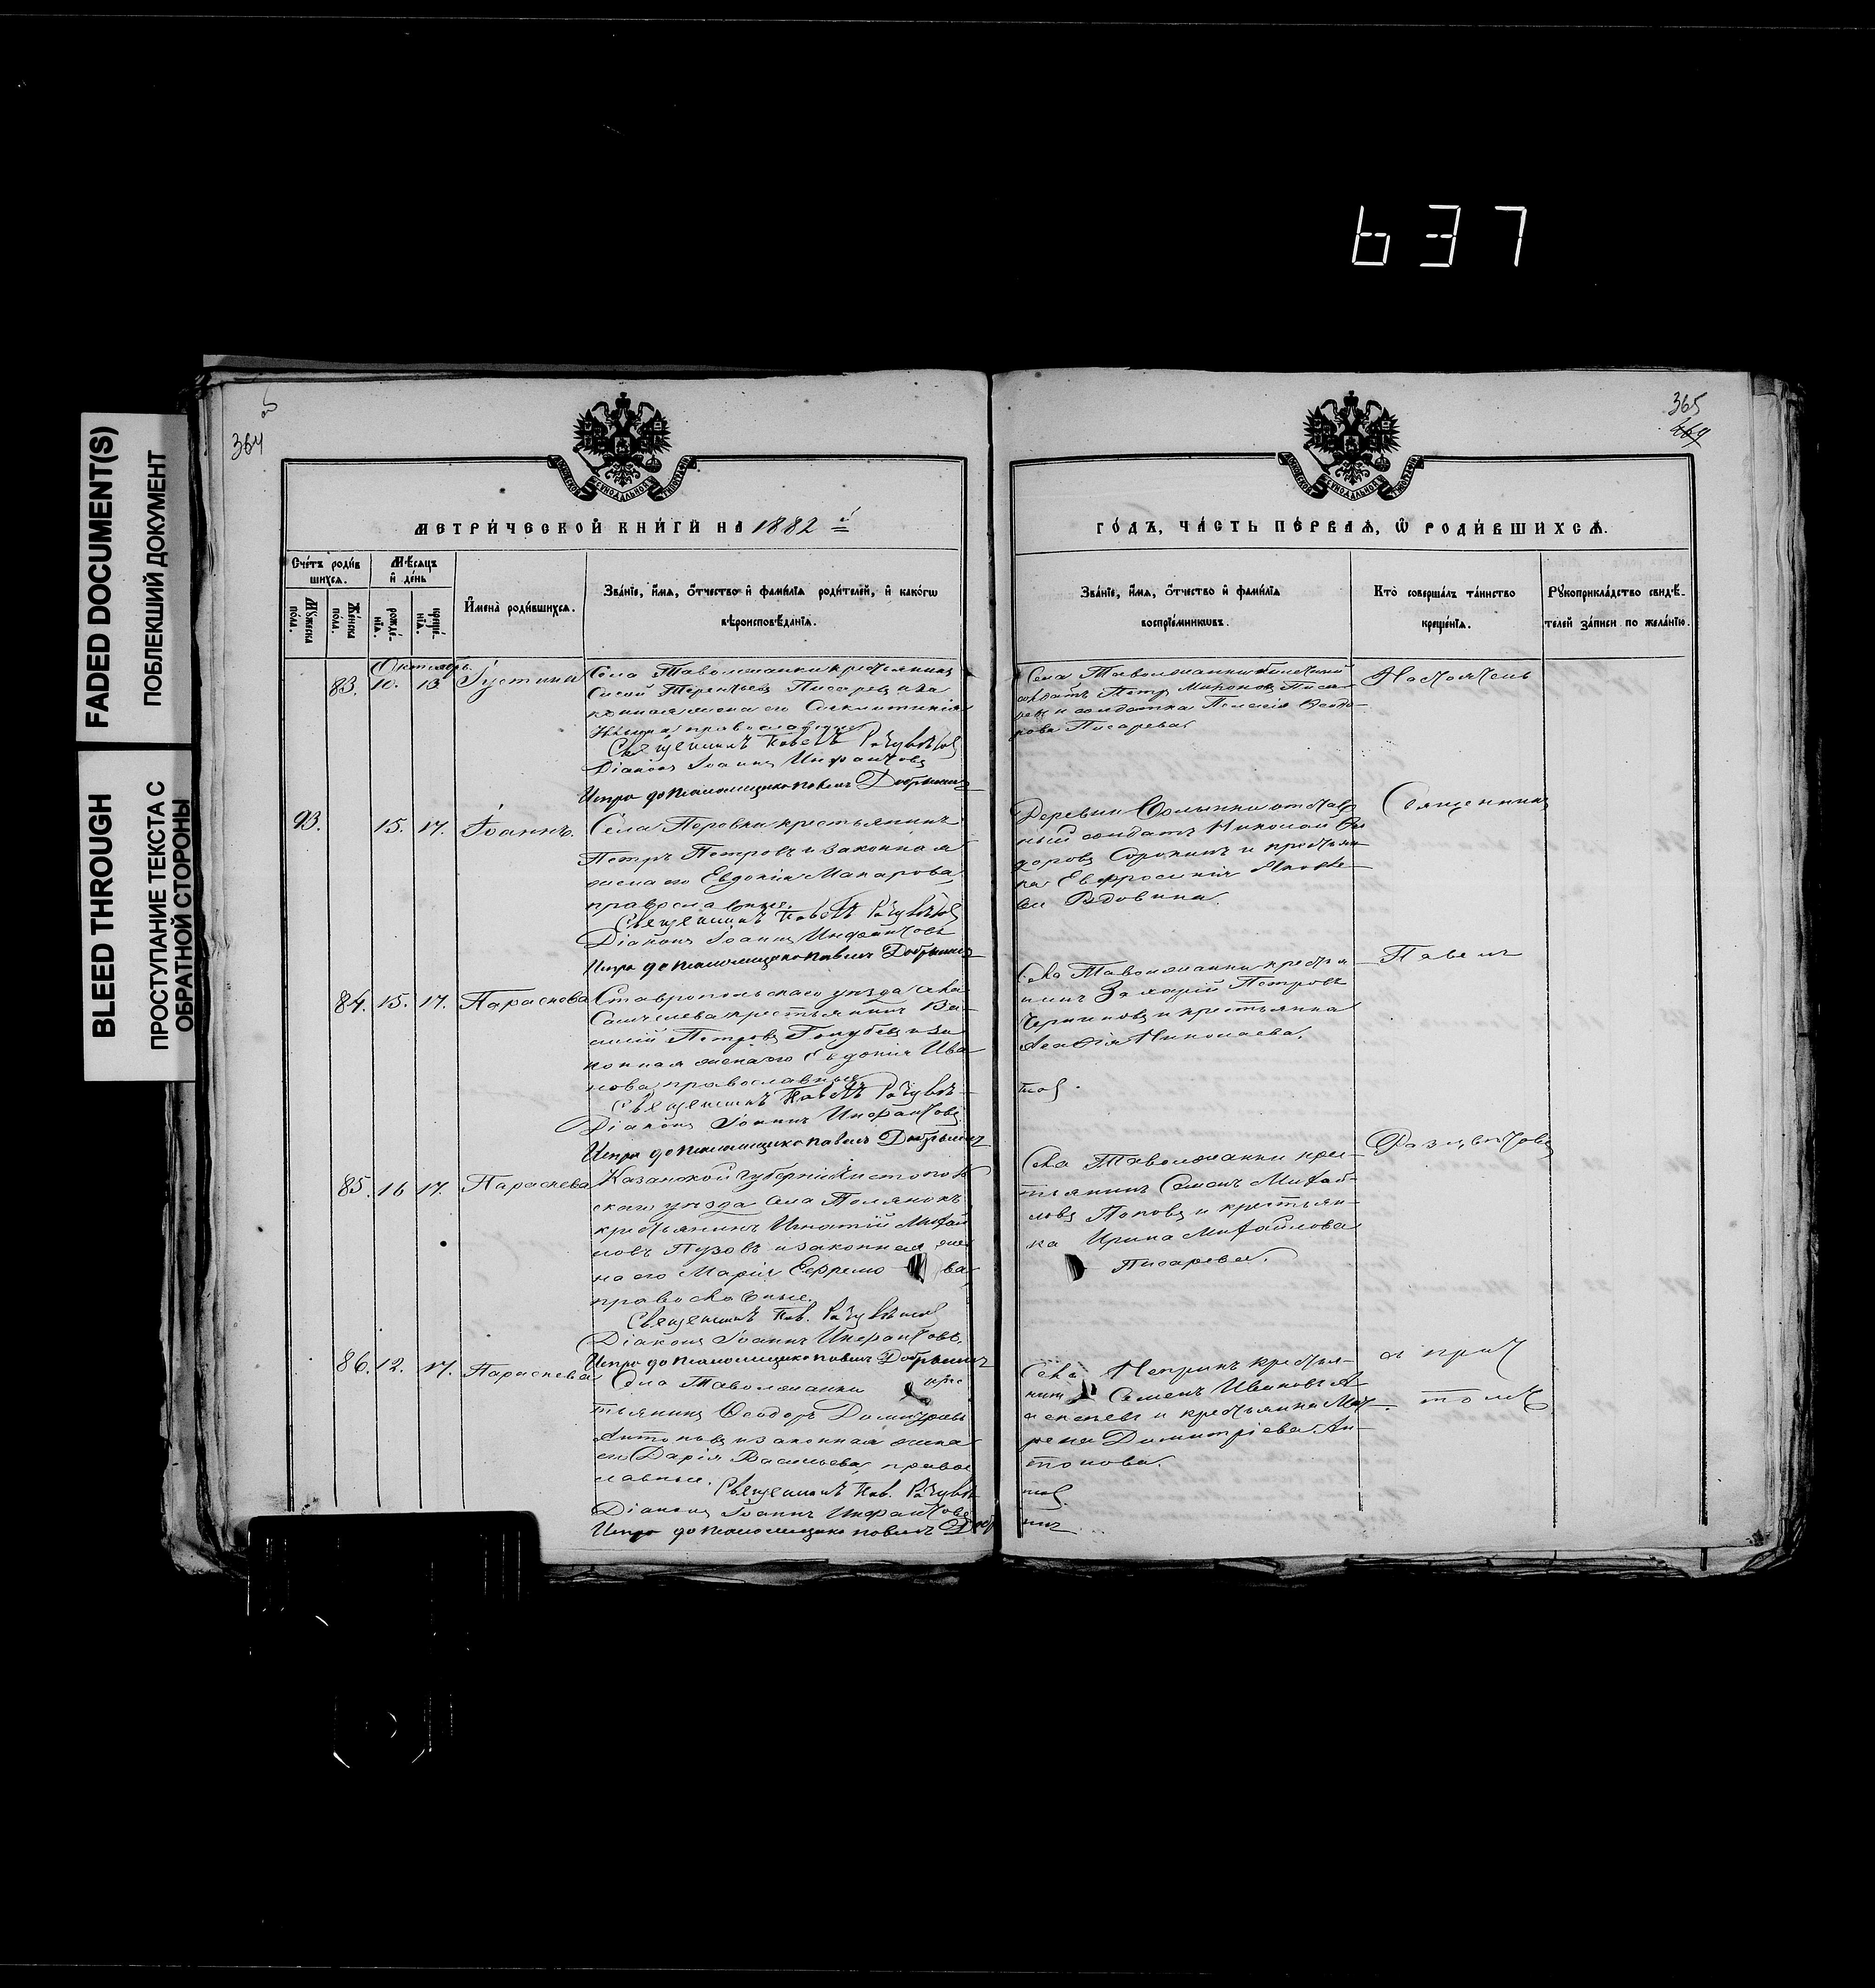 637
FADED DOCUMENT(S)
ПОБЛЕКШИЙ ДОКУМЕНТ
BLEED THROUGH
ПРОСТУПАНИЕ ТЕКСТА С
ОБРАТНОЙ СТОРОНЫ
364
365
МЕТРИ́ЧЕСКОЙ КНИ́ГИ НА 1882 й
ГО́ДЪ, ЧА́СТЬ ПЕ́РВАЯ, Ѡ РОДИ́ВШИХСЯ.
Сче́тъ роди́в
шихся.
Мѣсяцъ
и де́нь
Мꙋжеска
по́ла.
Же́нска
по́ла.
рожде́-
нїя.
креще́-
нїя.
Имена̀ роди́вшихся.
Зва́нїе, и́мя, о́тчество и фами́лїя роди́телей, и како́гѡ
вѣроисповѣ́данїя.
Зва́нїе, и́мя, о́тчество и фами́лїя
воспрїе́мникѡвъ.
Кто̀ соверша́лъ та́инство
креще́нїя.
Рꙋкоприкла́дство свидѣ́-
телей за́писи по жела́нїю.
Октябрь
83. 10. 13. Іустина
Села Таволжанки крестьянинъ
Сисой Терентьевъ Писаревъ и за
конная жена его
православные
Священникъ Павелъ Разцвѣтовъ
Діаконъ Іоаннъ Инфантовъ
Испр. до псаломщика Павелъ Добрынинъ
Села Таволжанки билетный
солдатъ Петръ Мироновъ Писа-
ревъ и солдатка Пелагія Ѳеодо-
рова Писарева
Настоятель
93. 15. 17. Іоаннъ.
Села Перовки крестьянинъ
Петръ Петровъ и законная
жена его Евдокія Макарова,
православные.
Священникъ Павелъ Разцвѣтовъ
Діаконъ Іоаннъ Инфантовъ
Испр. до псаломщика Павелъ Добрынинъ
Деревни отстав
ный солдатъ Николай Ѳе
доровъ Сорокинъ и крестьян
ка Евфросинія Яковле
ва Вдовина.
Священникъ
84. 15. 17. Параскева
Ставропольскаго уѣзда села
крестьянинъ Ва-
силій Петровъ Голубевъ и за
конная жена его Евдокія Ива
нова православные
Священникъ Павелъ Разцвѣ-
Діаконъ Іоаннъ Инфантовъ
Испр. до псаломщика Павелъ Добрынинъ
Села Таволжанки крестья
нинъ Захарій Петровъ
и крестьянка
Агафія Николаева.
товъ.
Павелъ
85. 16 17. Параскева
Казанской губерніи Чистополь
скаго уѣзда села Полянокъ
крестьянинъ Игнатій Михай
ловъ Пузовъ и законная же
на его Марія Ефремо ва
православные.
Священникъ Пав. Разцвѣтовъ
Діаконъ Іоаннъ Инфантовъ.
Испр. до псаломщика Павелъ Добрынинъ
Села Таволжанки крес-
тьянинъ Семенъ Михай-
ловъ Поповъ и крестьян-
ка Ирина Михайлова
Писарева.
Разцвѣтовъ
86. 12. 17. Параскева
Села Таволжанки крес
тьянинъ Ѳеодоръ Димитріевъ
Антоновъ и законная жена
его Дарія Васильева, право
славные.
Священникъ Пав. Разцвѣ
Діаконъ Іоаннъ Инфантовъ
Испр. до псаломщика Павелъ Добр
Села крестья-
нинъ Семенъ Ивановъ А-
лексѣевъ и крестьянка Мат-
рена Димитріева Ан-
тонова.
товъ.
нинъ
съ прич
томъ